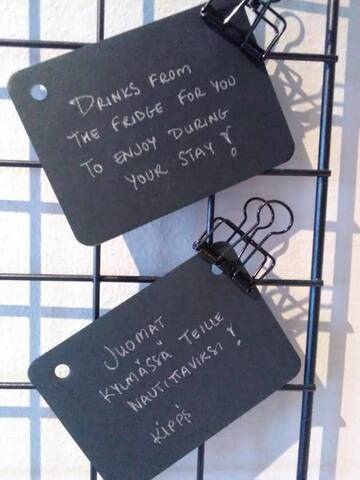 DRINKS FROM
THE FRIDGE FOR YOU
TO ENJOY DURING
YOUR STAY!
JUOMAT
KYLMÄSSÄ TEILLE
NAUTITTAVIKSI!
KIPPIS